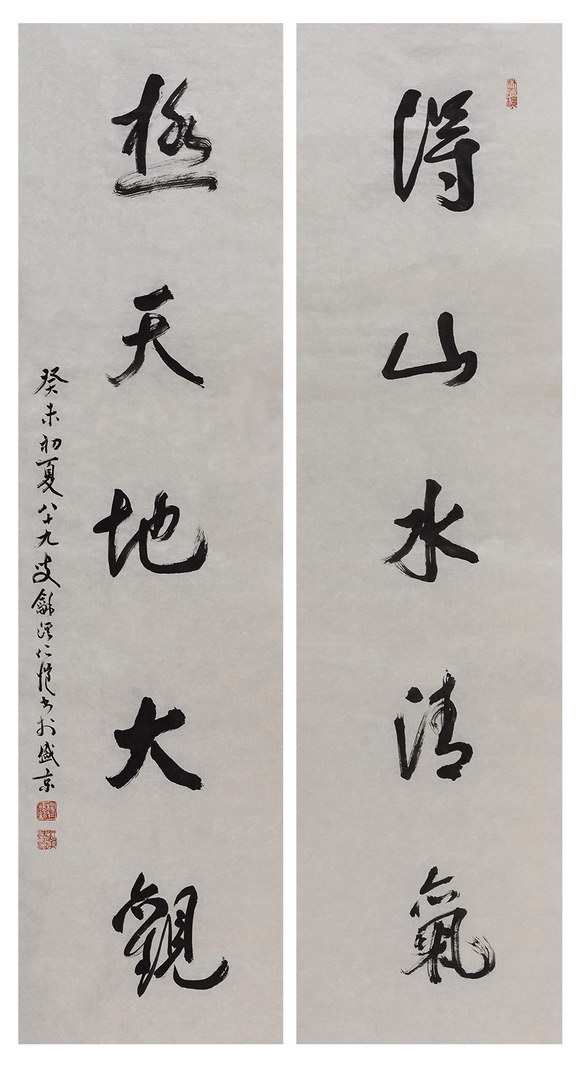 得山水清氣
極天地大觀
癸未初夏八十九叟龢溪仁愷書於盛京